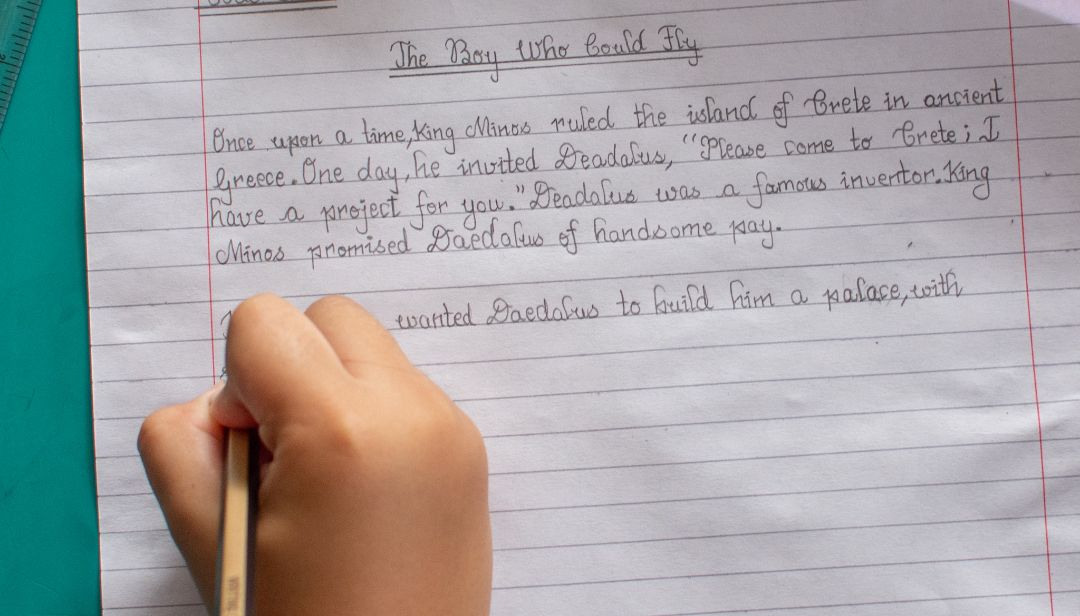 The Boy Who Could Fly
Once upon a time, King Minos ruled the island of Crete in ancient
Greece. One day, he invited Deadalus, "Please come to Crete; I
have a project for you." Deadalus was a famous inventor. King
Minos promised Daedalus of handsome pay.
wanted Daedalus to build him a palace, with